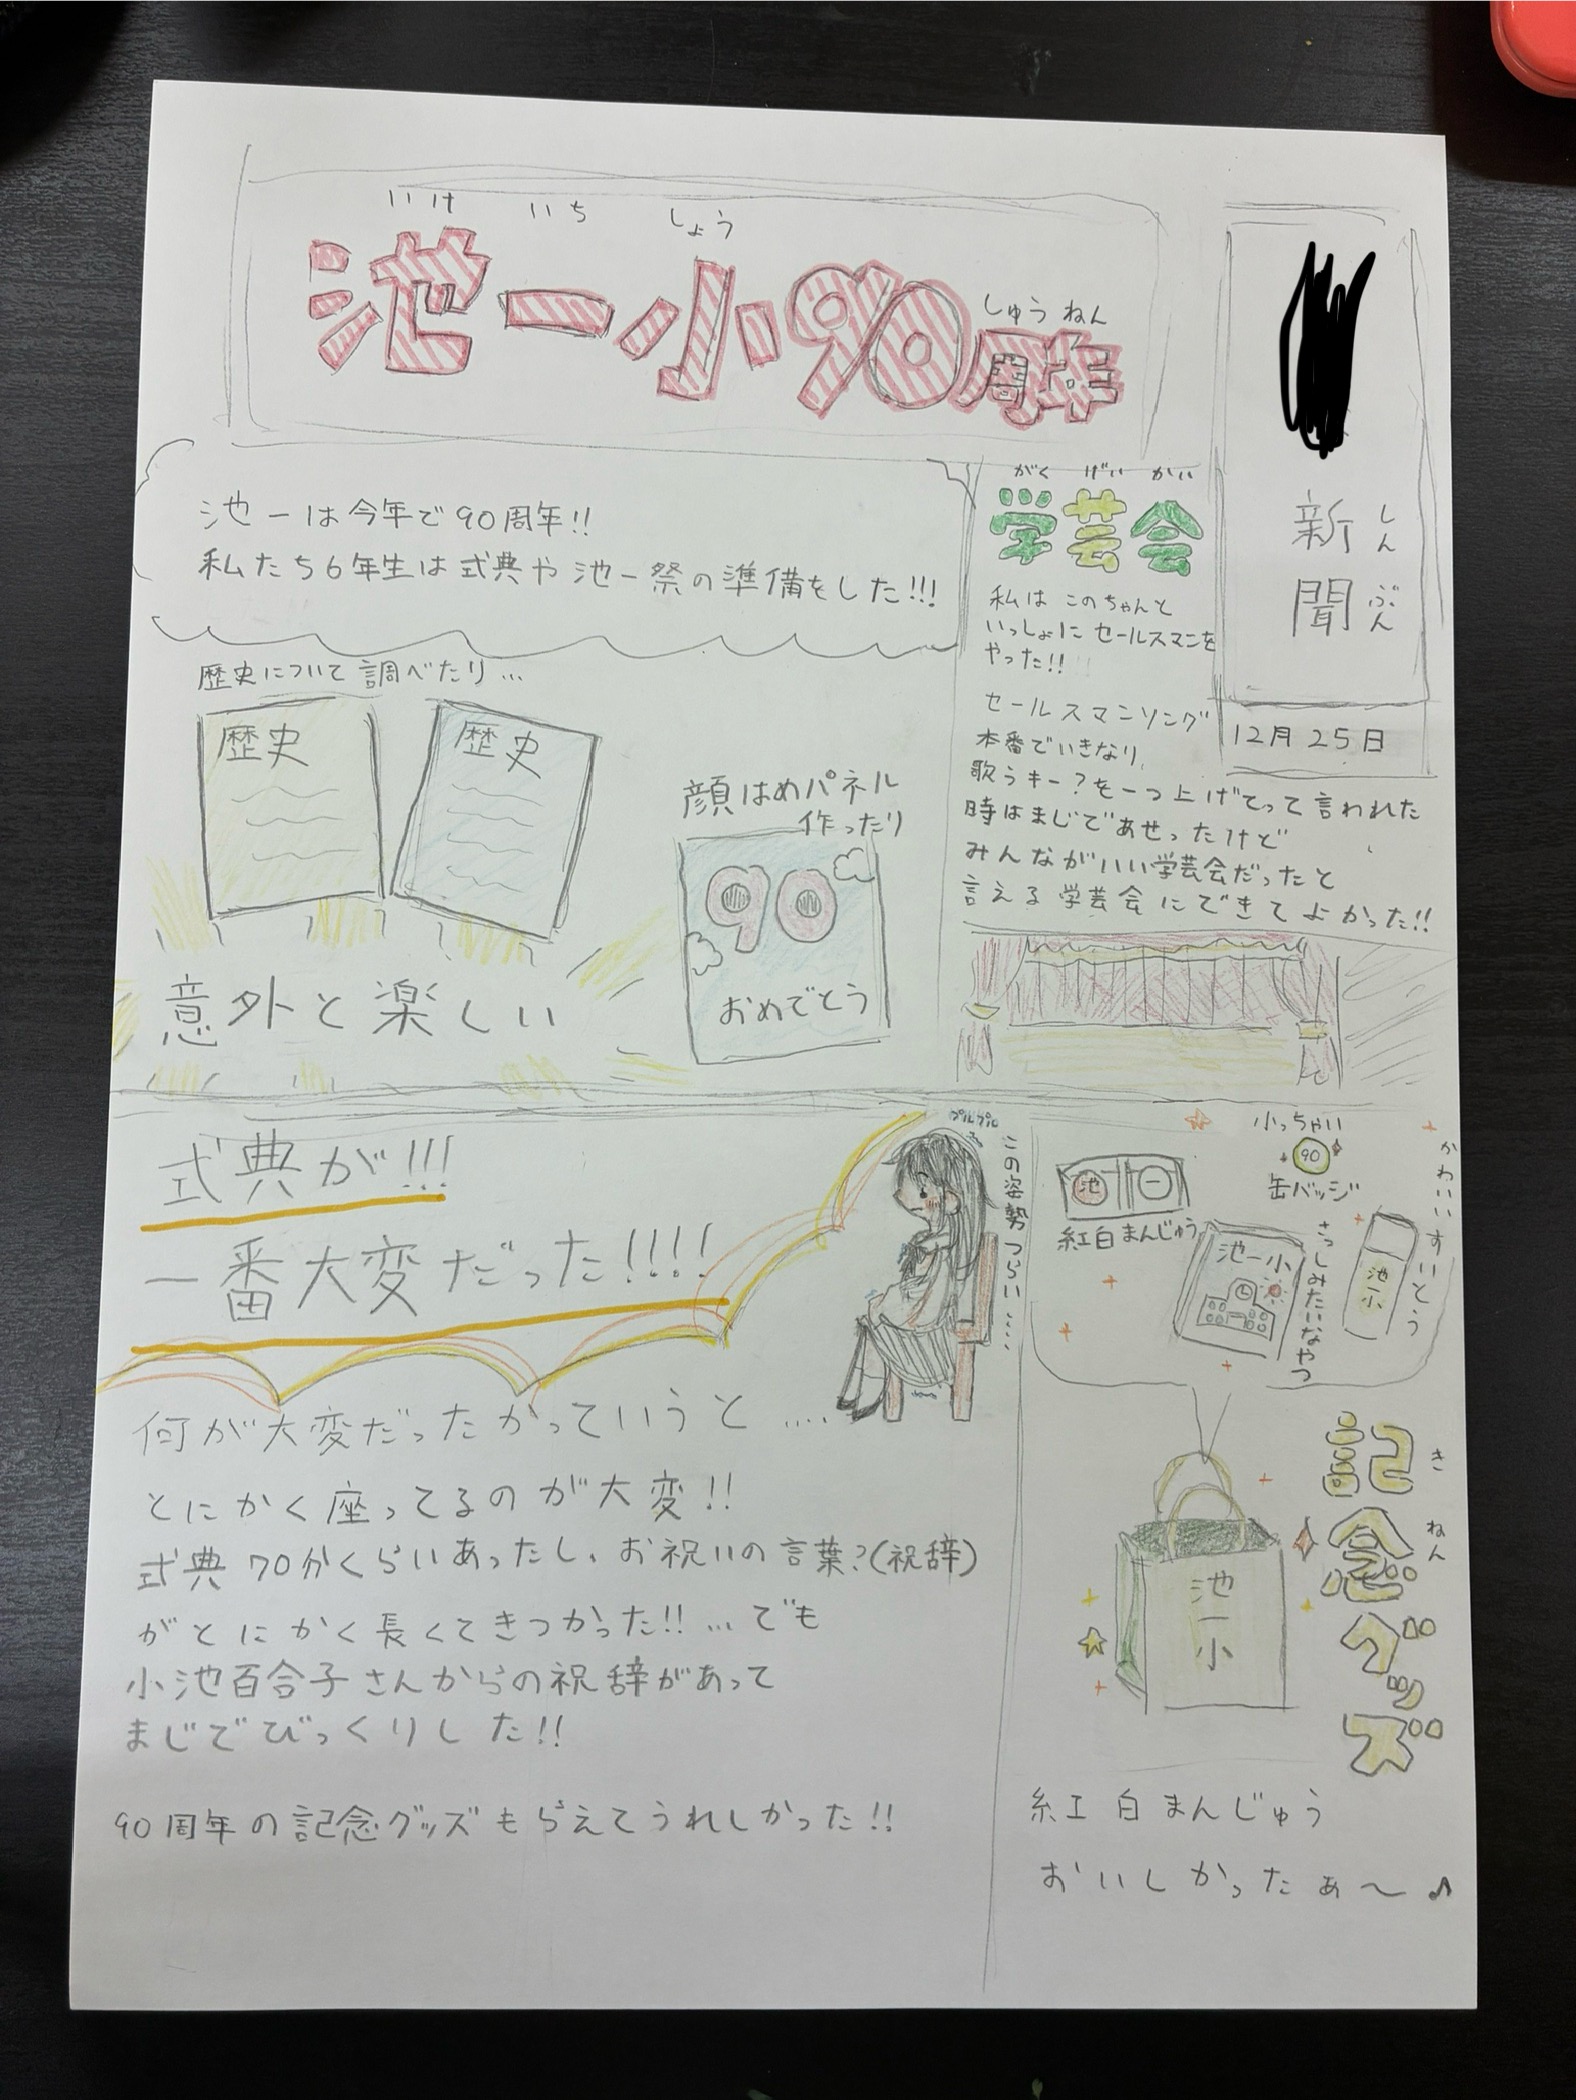 いけ いち しょう
池一小90周年
しゅう ねん
新聞
しん ぶん
12月25日
池一は今年で90周年!!
私たち6年生は式典や池一祭の準備をした!!!
歴史について調べたり…
歴史
歴史
顔はめパネル
作ったり
90
おめでとう
意外と楽しい
がく げい かい
学芸会
私は このちゃんと
いっしょに セールスマンを
やった!!
セールスマンソング
本番でいきなり
歌うキー?を一つ上げてって言われた
時はまじであせったけど
みんながいい学芸会だったと
言える学芸会にできてよかった!!
式典が!!!
一番大変だった!!!!
プルプル
この姿勢つらい……
何が大変だったかっていうと….
とにかく座ってるのが大変!!
式典70分くらいあったし、お祝いの言葉?(祝辞)
がとにかく長くてきつかった!!…でも
小池百合子さんからの祝辞があって
まじでびっくりした!!
90周年の記念グッズもらえてうれしかった!!
小っちゃい
90
缶バッジ
池一
紅白まんじゅう
池一小
さっしみたいなやつ
池一小
かわいいすいとう
き ねん
記念グッズ
池一小
紅白まんじゅう
おいしかったぁ〜♪